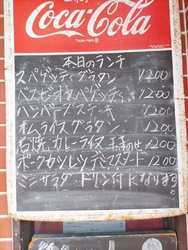 Coca-Cola
本日のランチ
スパゲッティグラタン ¥1200
¥1200
ハンバーグステーキ ¥1200
オムライスグラタン 1200
石焼カレーライス 1200
ポークカツレツデミ 1200
ミニサラダドリンク付になります。